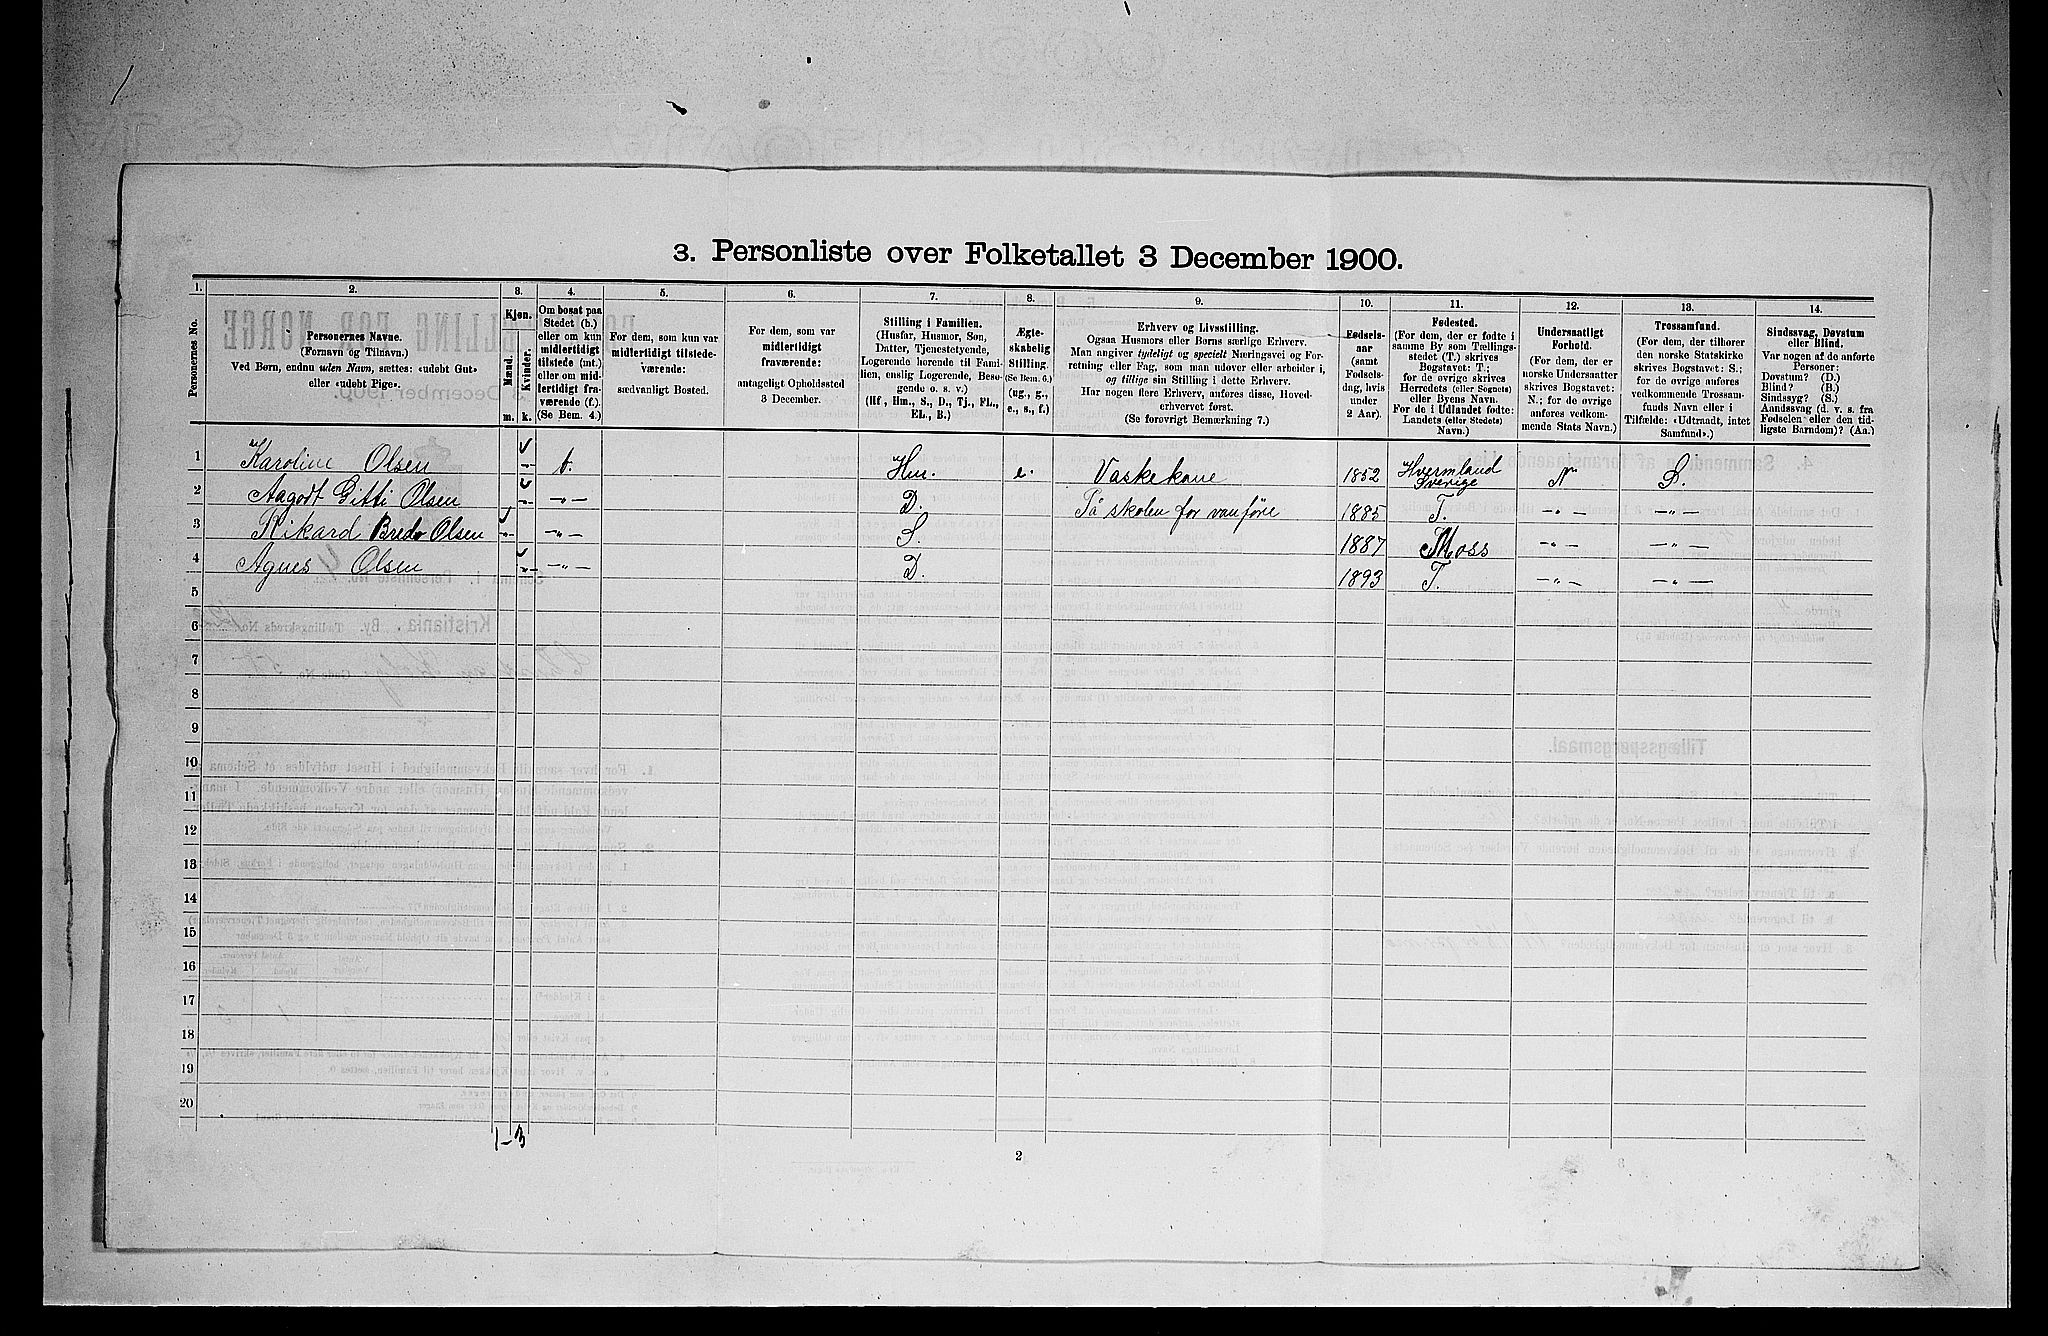 3. Personliste over Folketallet 3 December 1900.
1. 2. 3. 4. 5. 6. 7. 8. 9. 10. 11. 12. 13. 14.
Personernes No.
Personernes Navne.
(Fornavn og Tilnavn.)
Ved Børn, endnu uden Navn, sættes: «udøbt Gut»
eller «udøbt Pige».
Kjøn.
Mænd. Kvinder.
m. k.
Om bosat paa
Stedet (b.)
eller om kun
midlertidigt
tilstede (mt.)
eller om mid-
lertidigt fra-
værende (f.).
(Se Bem. 4.)
For dem, som kun var
midlertidigt tilstede-
værende:
sædvanligt Bosted.
For dem, som var
midlertidigt
fraværende:
antageligt Opholdssted
3 December.
Stilling i Familien.
(Husfar, Husmor, Søn,
Datter, Tjenestetyende,
Logerende hørende til Fami-
lien, enslig Logerende, Besø-
gende o. s. v.)
(Hf., Hm., S., D., Tj., FL.,
EL., B.)
Ægte-
skabelig
Stilling.
(Se Bem. 6.)
(ug., g.,
e., s., f.)
Erhverv og Livsstilling.
Ogsaa Husmors eller Børns særlige Erhverv.
Man angiver tydeligt og specielt Næringsvei og For-
retning eller Fag, som man udøver eller arbeider i,
og tillige sin Stilling i dette Erhverv.
Har nogen flere Erhverv, anføres disse, Hoved-
erhvervet først.
(Se forøvrigt Bemærkning 7.)
Fødsels-
aar
(samt
Fødsels-
dag, hvis
under
2 Aar).
Fødested.
(For dem, der er fødte i
samme By som Tællings-
stedet (T.) skrives
Bogstavet: T.;
for de øvrige skrives
Herredets (eller Sognets)
eller Byens Navn.
For de i Udlandet fødte:
Landets (eller Stedets)
Navn.)
Undersaatligt
Forhold.
(For dem, der er
norske Undersaatter
skrives Bogstavet:
N.; for de øvrige
anføres vedkom-
mende Stats Navn.)
Trossamfund.
(For dem, der tilhører
den norske Statskirke
skrives Bogstavet: S.;
for de øvrige anføres
vedkommende Trossam-
funds Navn eller i
Tilfælde: «Udtraadt, intet
Samfund».)
Sindssvag, Døvstum
eller Blind.
Var nogen af de anførte
Personer:
Døvstum? (D.)
Blind? (B.)
Sindssyg? (S.)
Aandssvag (d. v. s. fra
Fødselen eller den tid-
ligste Barndom)? (Aa.)
1 Karoline Olsen b. Hm. e. Vaskekone 1852 Hvermland Sverige N S.
2 Aagodt Gitti Olsen D. På skolen for vanføre 1885 T.
3 Rikard Bredo Olsen S. 1887 Moss
4 Agnes Olsen D. 1893 T.
5
6
7
8
9
10
11
12
13
14
15
16
17
18
19
20
1-3
2